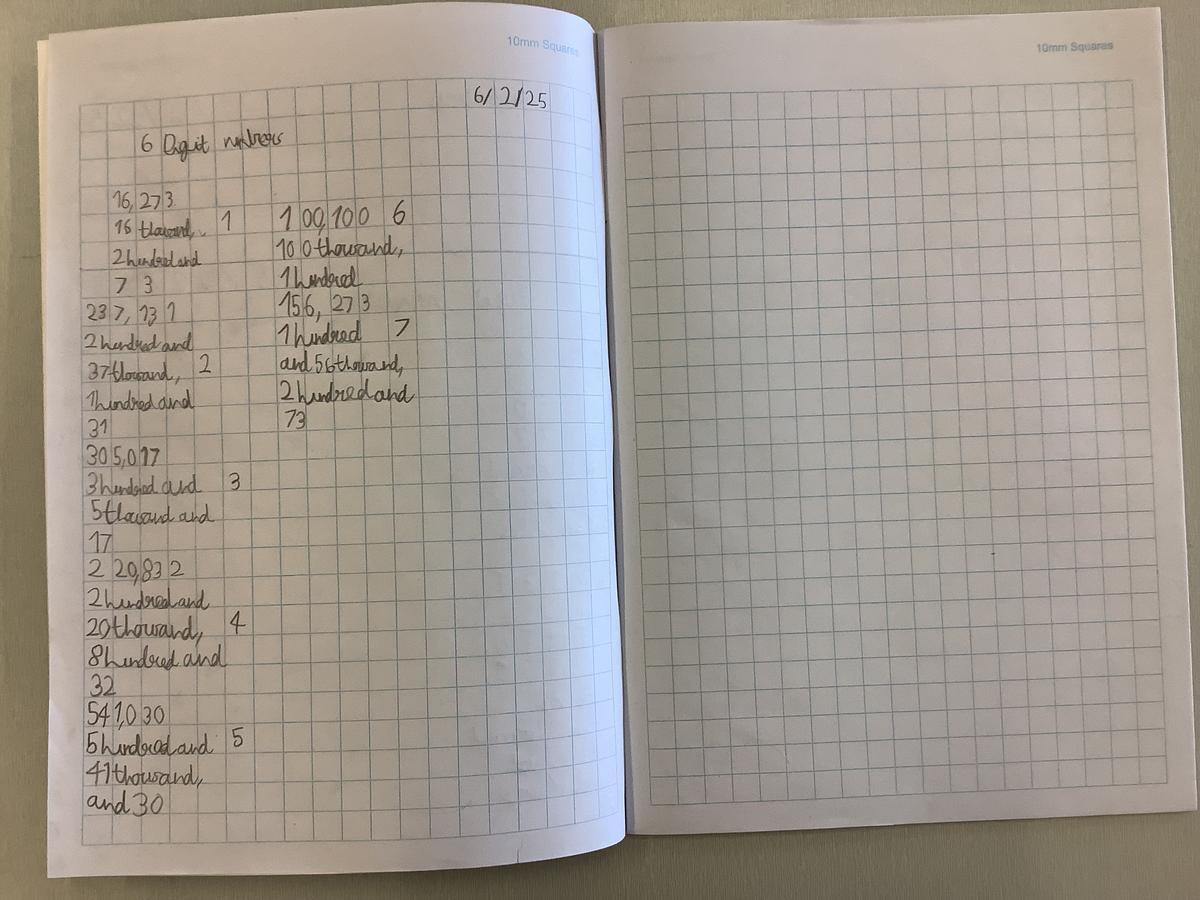 10mm Squares
6/2/25
6 Digit numbers
16,273
16 thousand, 1
2 hundred and
73
237,131
2 hundred and
37 thousand, 2
1 hundred and
31
305,017
3 hundred and 3
5 thousand and
17
220,832
2 hundred and
20 thousand, 4
8 hundred and
32
541,030
5 hundred and 5
41 thousand,
and 30
100,100 6
100 thousand,
1 hundred
156,273
1 hundred 7
and 56 thousand,
2 hundred and
73
10mm Squares